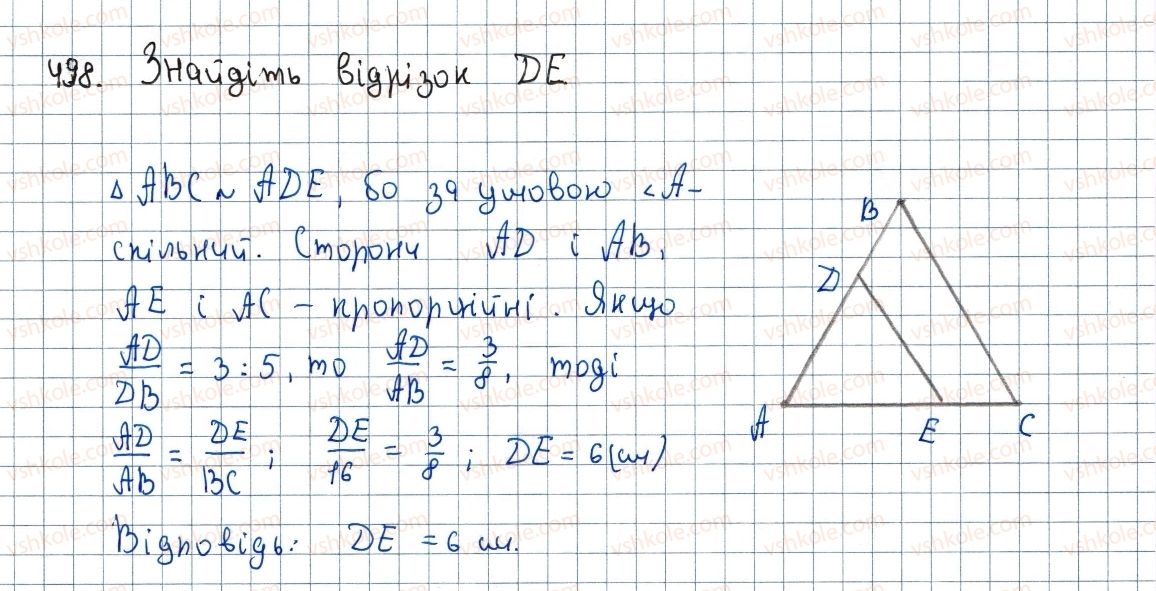 498. Знайдіть відрізок DE
△ ABC ~ ADE, бо за умовою <A-
спільний. Сторони AD і AB,
AE і AC – пропорційні. Якщо
AD/DB = 3 : 5, то AD/AB = 3/8, тоді
AD/AB = DE/BC ; DE/16 = 3/8 ; DE = 6 (см)
Відповідь: DE = 6 см.
B
D
A
E
C